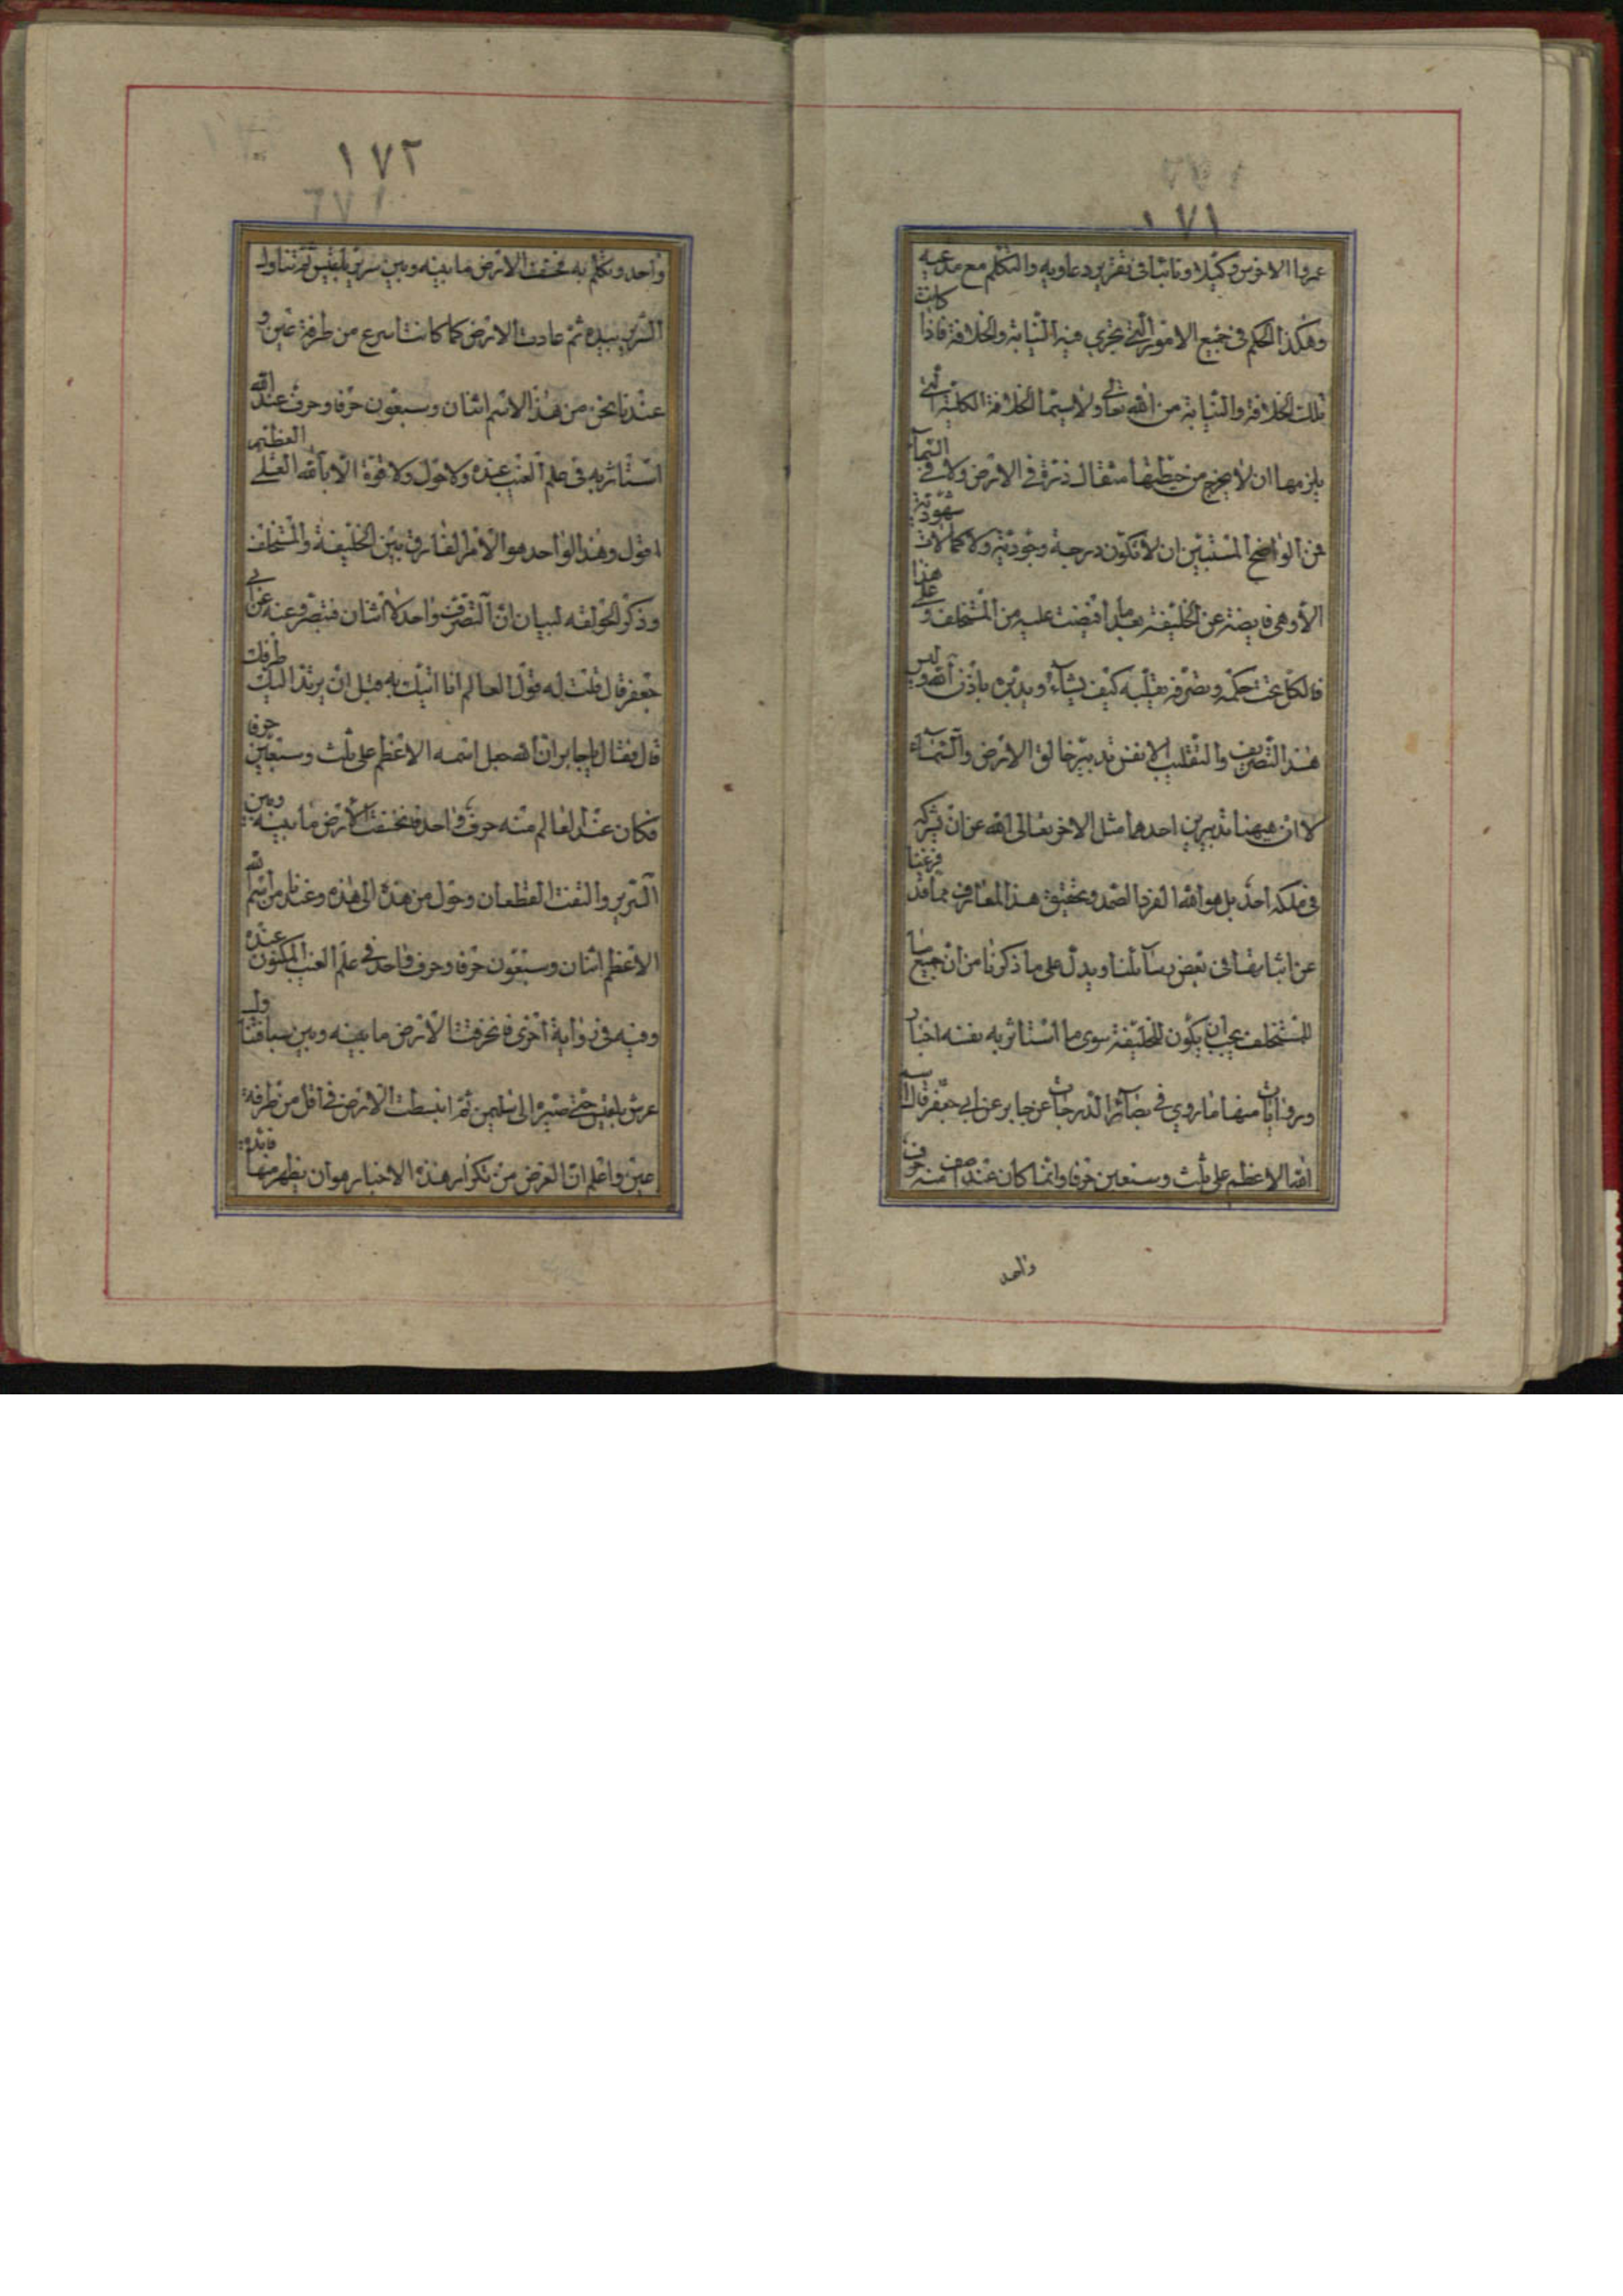 ١٧١
عمروا الاخرس وكيلا ونائبا في تقرير دعاويه والتكلم مع مدعيه
وهكذا الحكم في جميع الامور التي يجري فيه النيابة والخلافة فاذا كانت
تلك الخلافة والنيابة من الله تعالى ولا سيما الخلافة الكلية التي
يلزمها ان لا يخرج من حيطتها مثقال ذرة في الارض ولا في السماء
فمن الواضح المستبين ان لا تكون درجة وجودية ولا كمالات شهودية
الا وهي فايضة عن الخليفة بعد ما افيضت عليه من المستخلف و على هذا
فالكل تحت حكمه وتصرفه يقلبه كيف يشاء ويدبره باذن الله وليس
هذا التصريف والتقليب الا نفس تدبير خالق الارض والسماء
لا ان هيهنا تدبيرين احدهما مثل الاخر تعالى الله عن ان يشركه
في ملكه احد بل هو الله الفرد الصمد وتحقيق هذا المعارف مما قد فرغنا
عن اثباتها في بعض رسائلنا ويدل على ما ذكرنا من ان جميع ما
للمستخلف يجب ان يكون للخليفة سوى ما استاثر به نفسه اخبار
وروايات منها ما روي في بصائر الدرجات عن جابر عن ابي جعفر قال ان
اسم الله الاعظم على ثلث وسبعين حرفا وانما كان عند اصف منه حرف
واحد
١٧٢
واحد وتكلم به فخسف الارض ما بينه وبين سرير بلقيس ثم تناول
السرير بيده ثم عادت الارض كما كانت اسرع من طرفة عين و
عندنا نحن من هذا الاسم اثنان وسبعون حرفا وحرف عند الله
استاثر به في علم الغيب عنده ولا حول ولا قوة الا بالله العلي العظيم
اقول وهذا الواحد هو الامر الفارق بين الخليفة والمستخلف
وذكر الحولقه لبيان ان التصرف واحد لا اثنان فتبصر وعنه عن ابي
جعفر قال قلت له قول العالم انا اتيك به قبل ان يرتد اليك طرفك
قال فقال يا جابر ان الله جعل اسمه الاعظم على ثلث وسبعين حرفا
فكان عند العالم منه حرف واحد فانخسفت الارض ما بينه وبين
السرير والتفت القطعتان وحول من هذه الى هذه وعندنا من اسم الله
الاعظم اثنان وسبعون حرفا وحرف واحد في علم الغيب المكنون عنده
وفيه في رواية اخرى فانخرقت الارض ما بينه وبين سبا فتناول
عرش بلقيس حتى صيره الى سليمن ثم انبسطت الارض في اقل من طرفة
عين واعلم ان الغرض من تكرار هذه الاخبار هو ان يظهر منها فائدة